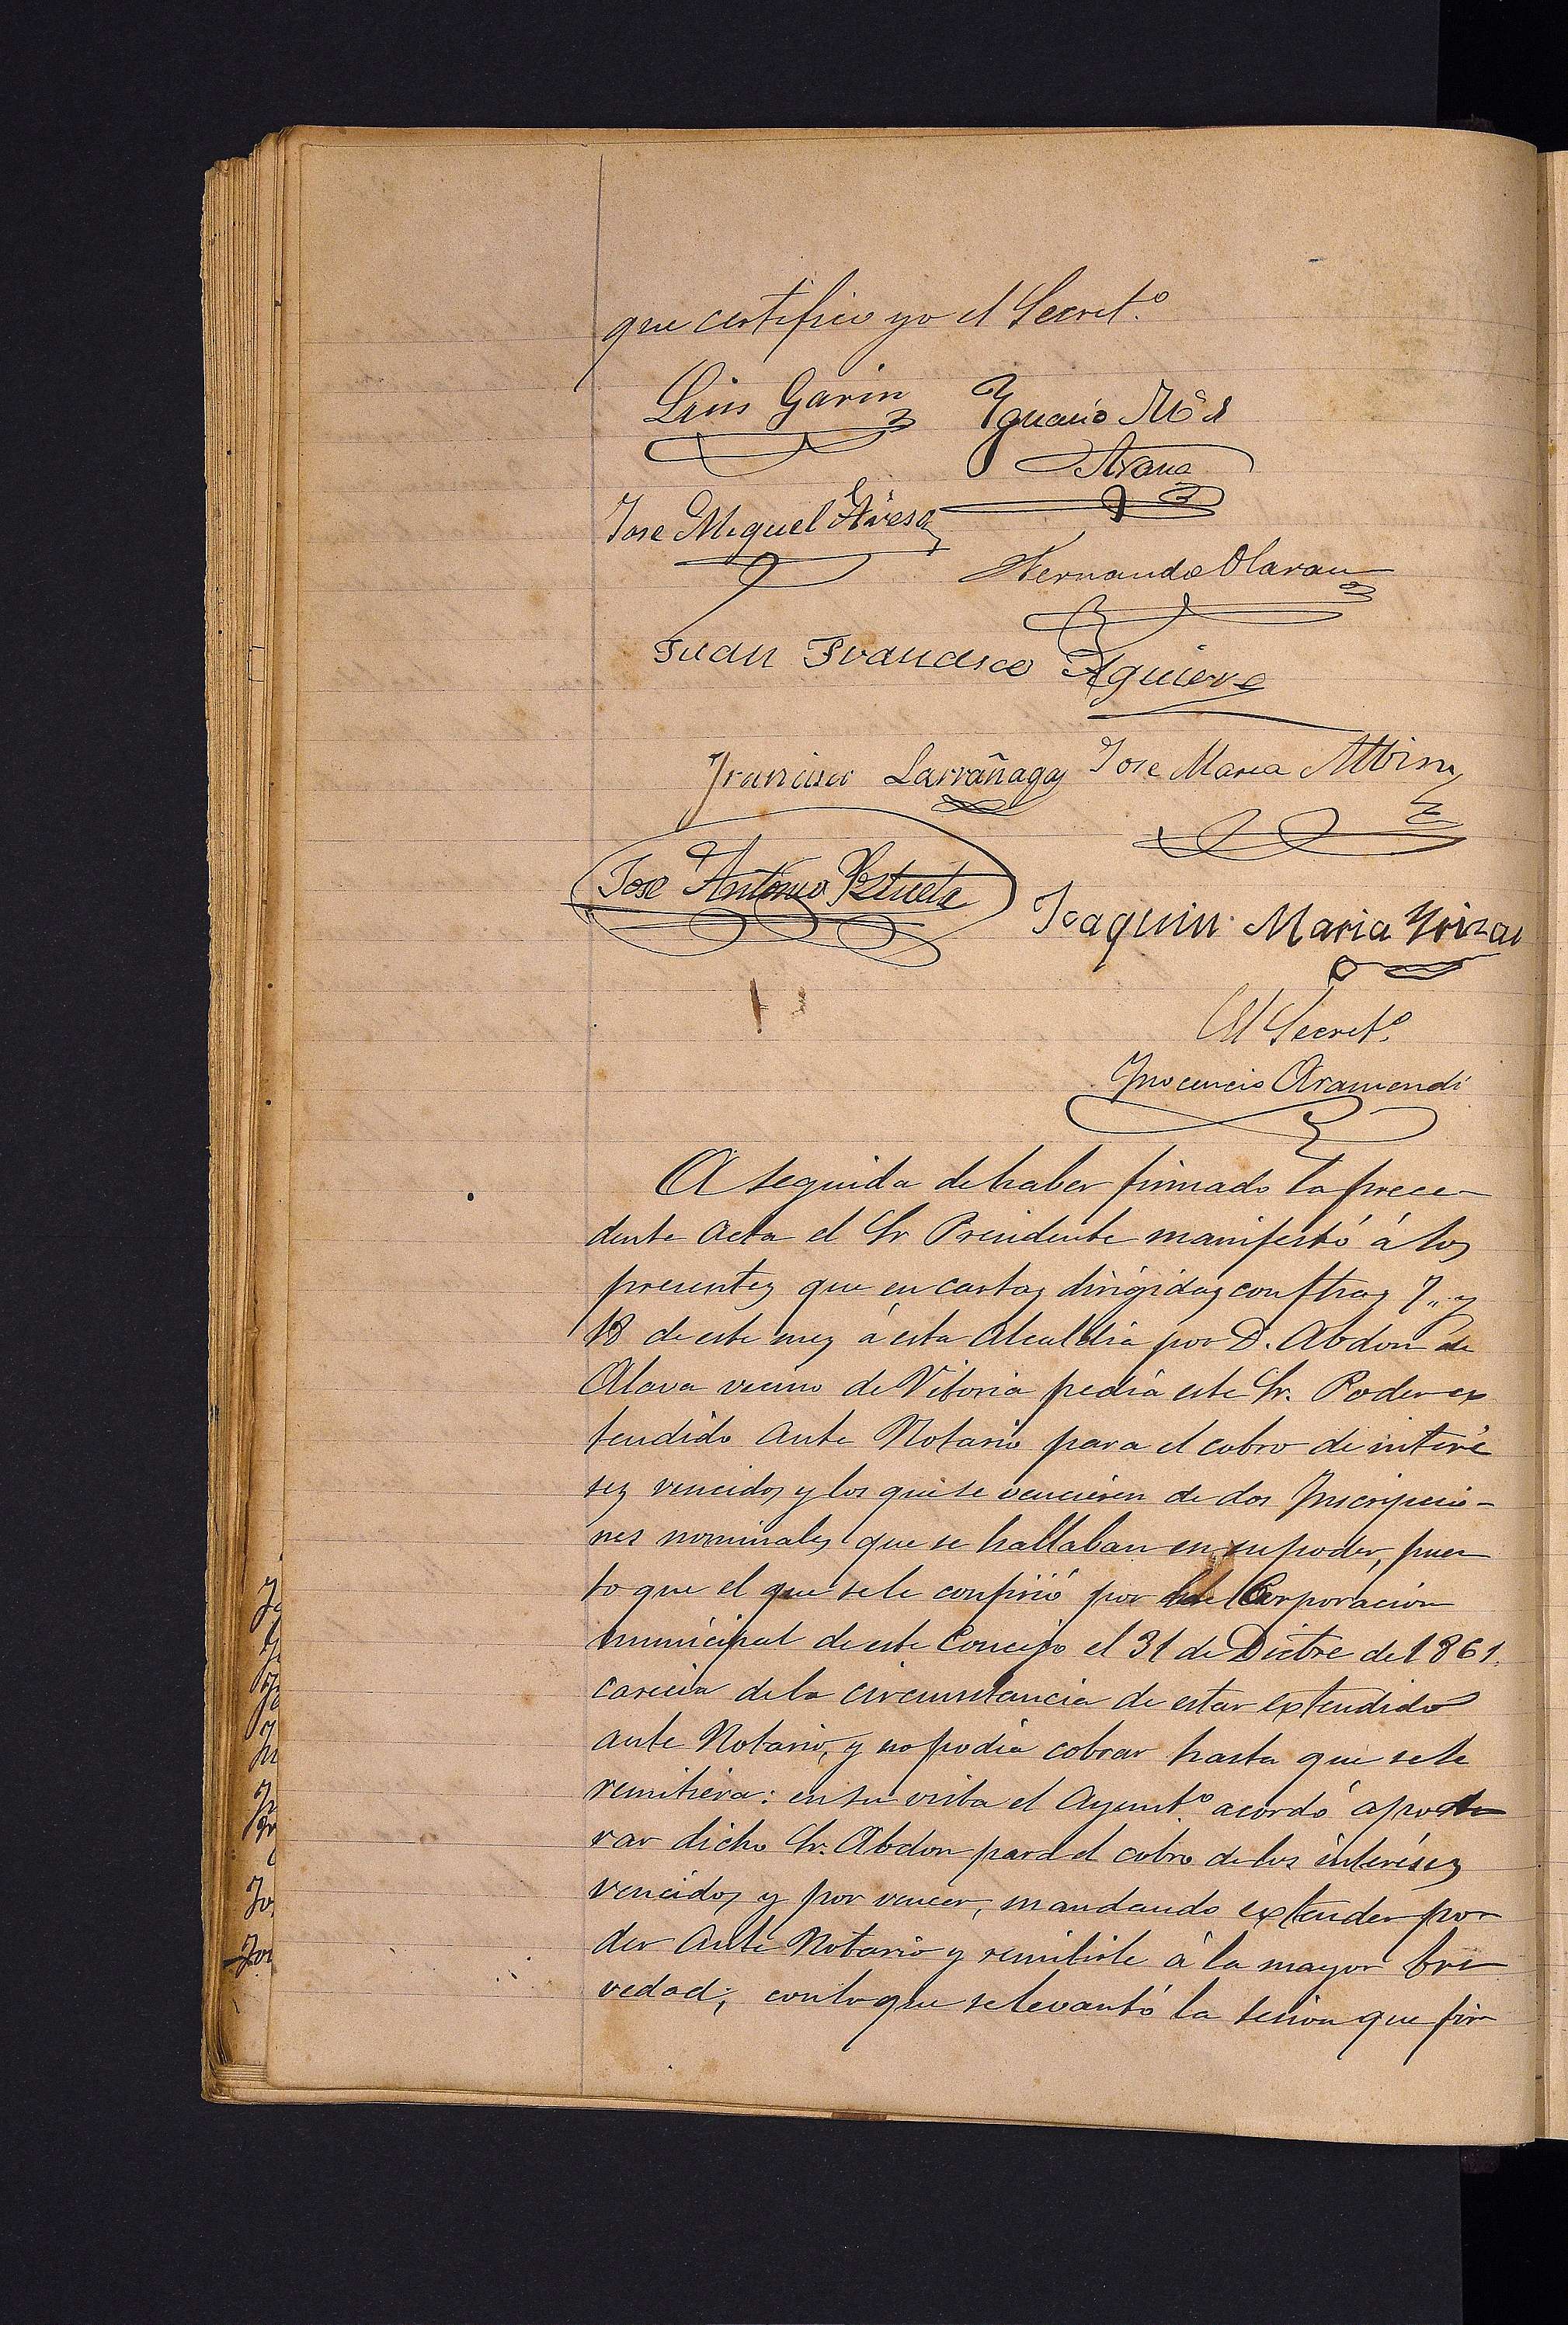 que certifico yo el Secret.º
Luis Garin Ygnacio Mª d
Arana
Jose Miguel
Fernando Olaran
Juan Francisco Aguirre
Francisco Larrañaga Jose Maria Albisu
Jose Antonio
Joaquin Maria Yrizar
El Secret.º
Ynocencio Aramendi
A seguida de haber firmado la prece-
dente acta el Sr Presidente manifestó á los
presentes que en cartas dirigidas con fhas 7 y
13 de este mes á esta Alcaldia por D. Abdon de
Alava vecino de Vitoria pedia este Sr. Poder ex
tendido ante Notario para el cobro de interé
ses vencidos y los que se vencieren de dos Inscripcio-
nes nominales que se hallaban en su poder, pues
to que el que se le confirió por la Corporacion
municipal de este Concejo el 31 de Dictre de 1861.
carecia de la circunstancia de estar extendido
ante Notario, y no podia cobrar hasta que se le
remitiera: en su vista el Ayunt.º acordó apode
rar dicho Sr. Abdon para el cobro de los interéses
vencidos y por vencer, mandando extender po
der ante Notario y remitirle á la mayor bre
vedad; con lo que se levantó la sesion que fir